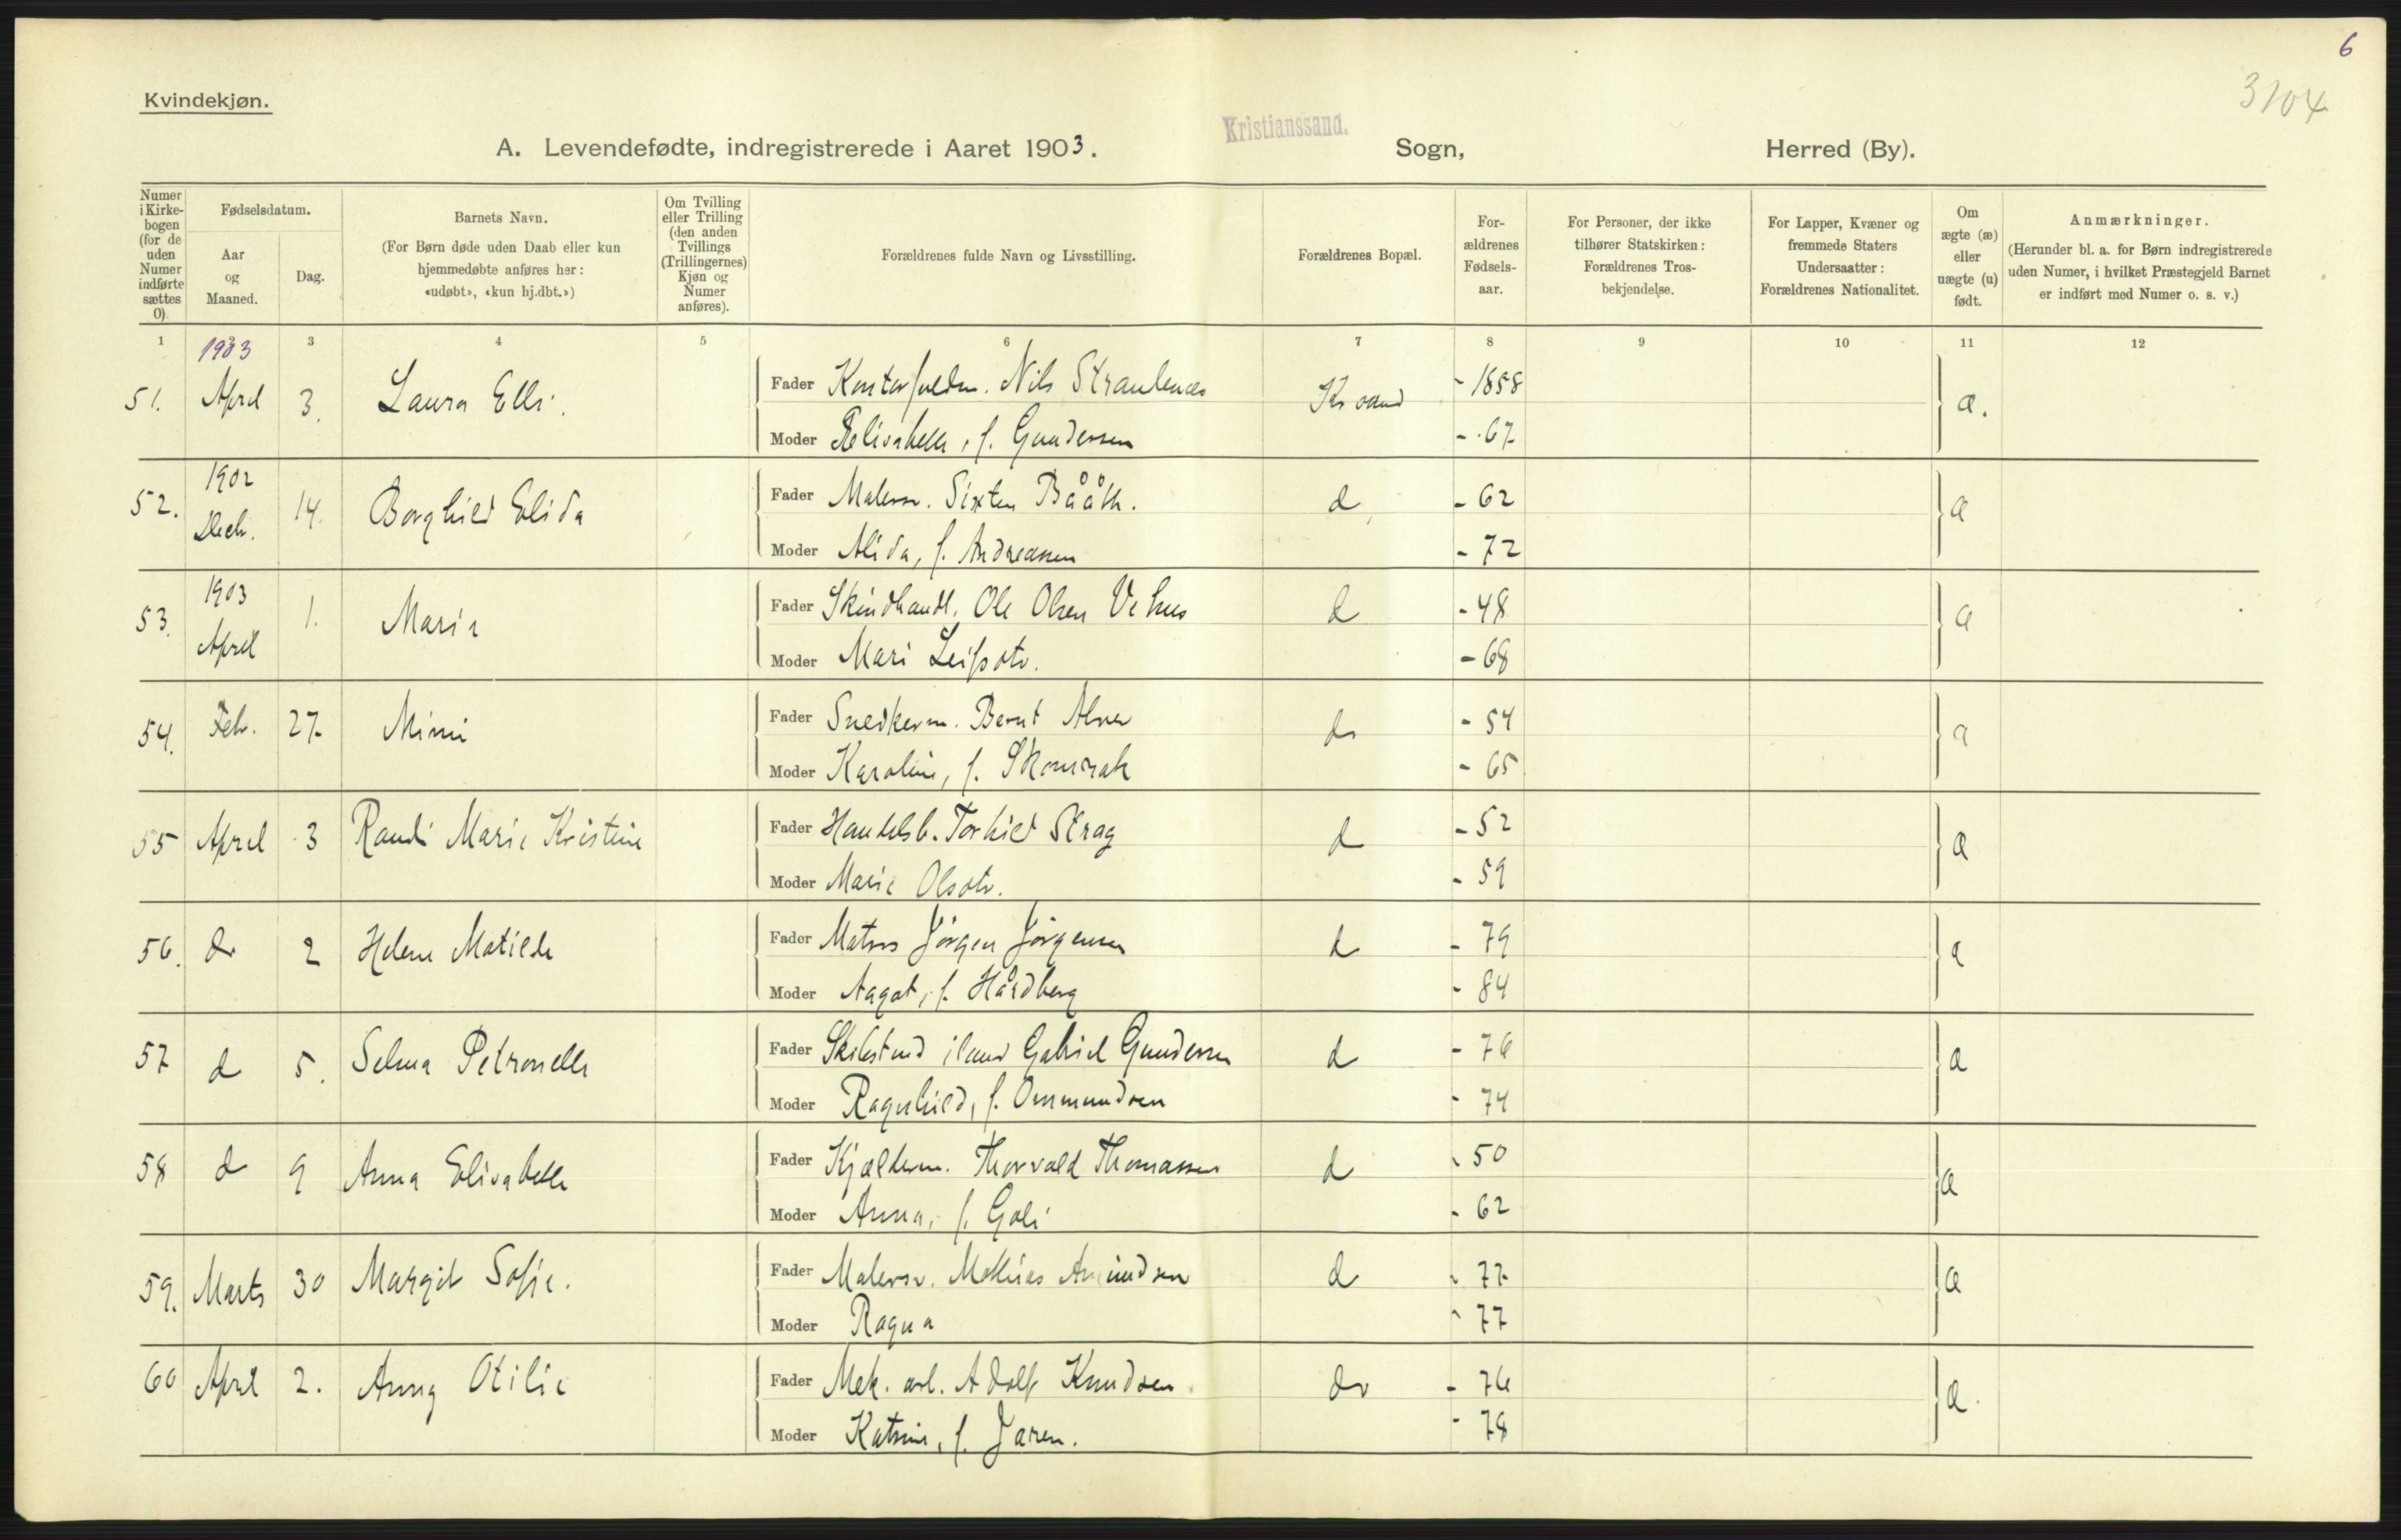 6
3104
Kvindekjøn.
A. Levendefødte, indregistrerede i Aaret 1903. Kristianssand. Sogn, Herred (By).
Numer i Kirke-bogen (for de uden Numer indførte sættes 0).
Fødselsdatum.
Aar og Maaned.
Dag.
Barnets Navn.
(For Børn døde uden Daab eller kun hjemmedøbte anføres her: «udøbt», «kun hj.dbt.»)
Om Tvilling eller Trilling (den anden Tvillings (Trillingernes) Kjøn og Numer anføres).
Forældrenes fulde Navn og Livsstilling.
Forældrenes Bopæl.
For-ældrenes Fødsels-aar.
For Personer, der ikke tilhører Statskirken: Forældrenes Tros-bekjendelse.
For Lapper, Kvæner og fremmede Staters Undersaatter: Forældrenes Nationalitet.
Om ægte (æ) eller uægte (u) født.
Anmærkninger.
(Herunder bl. a. for Børn indregistrerede uden Numer, i hvilket Præstegjeld Barnet er indført med Numer o. s. v.)
1 2 3 4 5 6 7 8 9 10 11 12
1903
51. April 3. Laura Elli. Fader Nils - 1858 æ.
Moder f. Gundersen - 67
1902
52. Decb. 14. Borghild Elida Fader Malersv. Sixten Bååth. d - 62 æ
Moder Alida, f. Andreassen - 72
1903
53. April 1. Marie Fader Skindhandl. Ole Olsen Vehus d - 48 æ
Moder Mari Leifsdtr. - 68
54. Feb. 27. Mimi Fader Snedkerm. Bernt d - 54 æ
Moder Karoline, f. - 65
55 April 3 Randi Marie Kristine Fader Handelsb. Torkild Strag d - 52 æ
Moder Marie Olsdtr. - 59
56. d 2 Helene Matilde Fader Matros Jörgen Jörgensen d - 79 æ
Moder Aagot, f. Hårdberg - 84
57 d 5. Selma Petronelle Fader Gabriel Gundersen d - 76 æ
Moder Ragnhild, f. Ommundsen - 74
58 d 9 Anna Elisabeth Fader Kjælderm. Thorvald Thomassen d - 50 æ
Moder Anna, f. Goli - 62
59. Marts 30 Margit Sofie. Fader Malersv. Mathias Amundsen d - 77 æ
Moder Ragna - 77
60 April 2. Anny Otilie Fader Mek. arb. Adolf Knudsen d - 76 æ.
Moder Katrine, f. Jaren. - 78